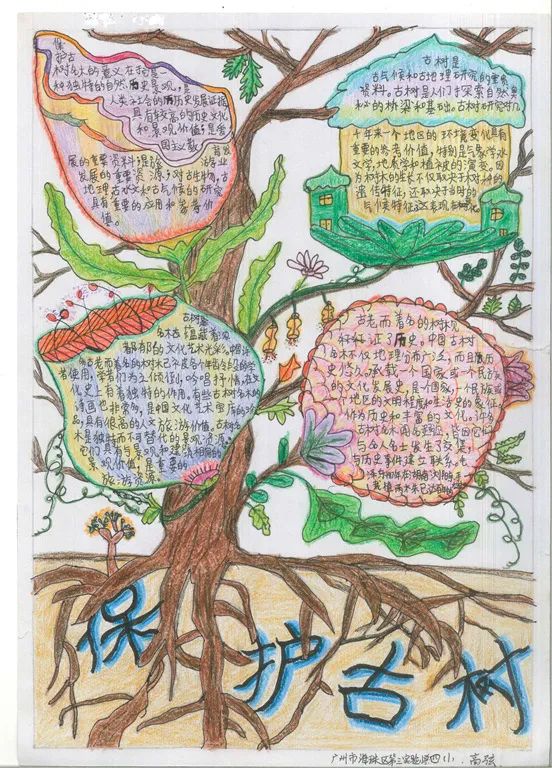 保
护古
树名木的意义在于它是一
种独特的自然历史景观,是
人类社会的历史发展证据
具有较高的历史文化
和景观价值;是爱
国主义教
育发
展的重要资料是旅游业
发展的重要资源;对古生物,古
地理古水文和古气候的研究
具有重要的应用和参考价
值。
古树是
古气候和古地理研究的重要
资料。古树是人们于探索自然奥
秘的桥梁和基础。古树研究对几
千年来一个地区的环境变化具有
重要的参考价值,特别是气象学水
文学,地质学和植被的演变。因
为树木的生长不仅取决于树种的
遗传特征,还取决于当时的
气候特征
古树是
名木古蕴藏着浓
都郁的文化艺术光彩。中国许
多古老而著名的树木已不
者使用,学者们为之倾倒,吟唱抒情,在文
化史上有着独特的作用。有些古树名木的
诗画也非常多,是中国文化艺术宝库的珍
品,具有很高的人文旅游价值。古树名
木是独特而不可替代的景观资源。
它们具有与景观和建筑相同的
景观价值,是重要的
旅游资源。
古老而著名的树木见
好好证了历史,中国古树
名木不仅地理分布广泛,而且历
史悠久。承载一个国家或一个民族
的文化发展史,是一个国家,一个民族或一
个地区的文明程度和生活史的象征,
作为历史和丰富的文化。许多
古树名木闻名遐迩,是因它们
与名人名士发生了交集,
与历史事件建立联系。
保护古树
广州市海珠区第三实验小学四(1).高弦